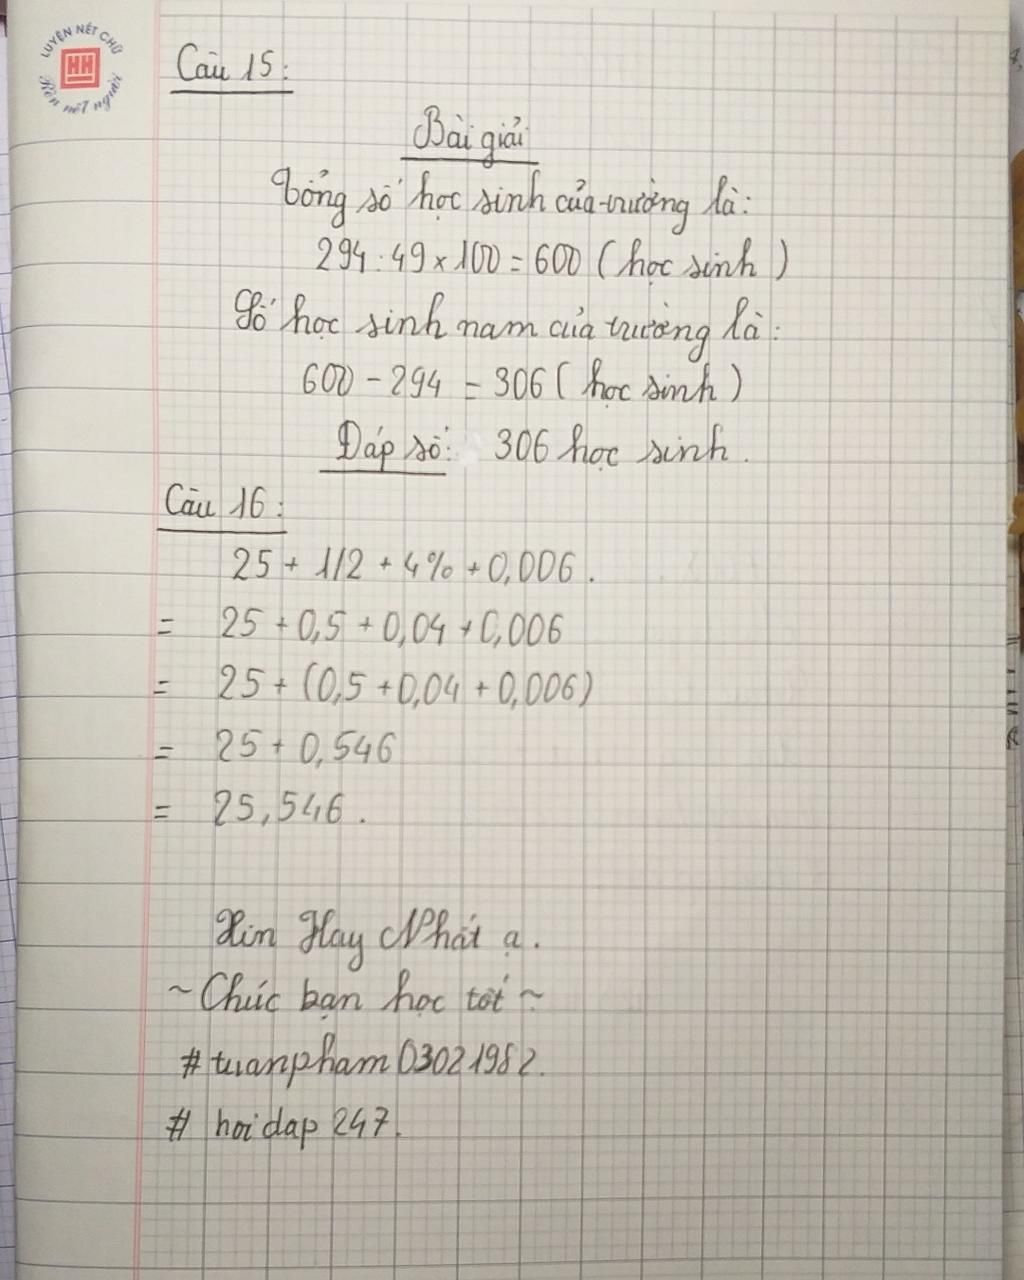 LUYỆN NÉT CHỮ
HH
Rèn nết người
Câu 15:
Bài giải
Tổng số học sinh của trường là:
294 : 49 × 100 = 600 ( học sinh )
Số học sinh nam của trường là:
600 - 294 = 306 ( học sinh )
Đáp số: 306 học sinh.
Câu 16:
25 + 1/2 + 4% + 0,006.
= 25 + 0,5 + 0,04 + 0,006
= 25 + (0,5 + 0,04 + 0,006)
= 25 + 0,546
= 25,546.
Xin Hay Nhất ạ.
~ Chúc bạn học tốt ~
# tuanpham03021982.
# hoidap 247.